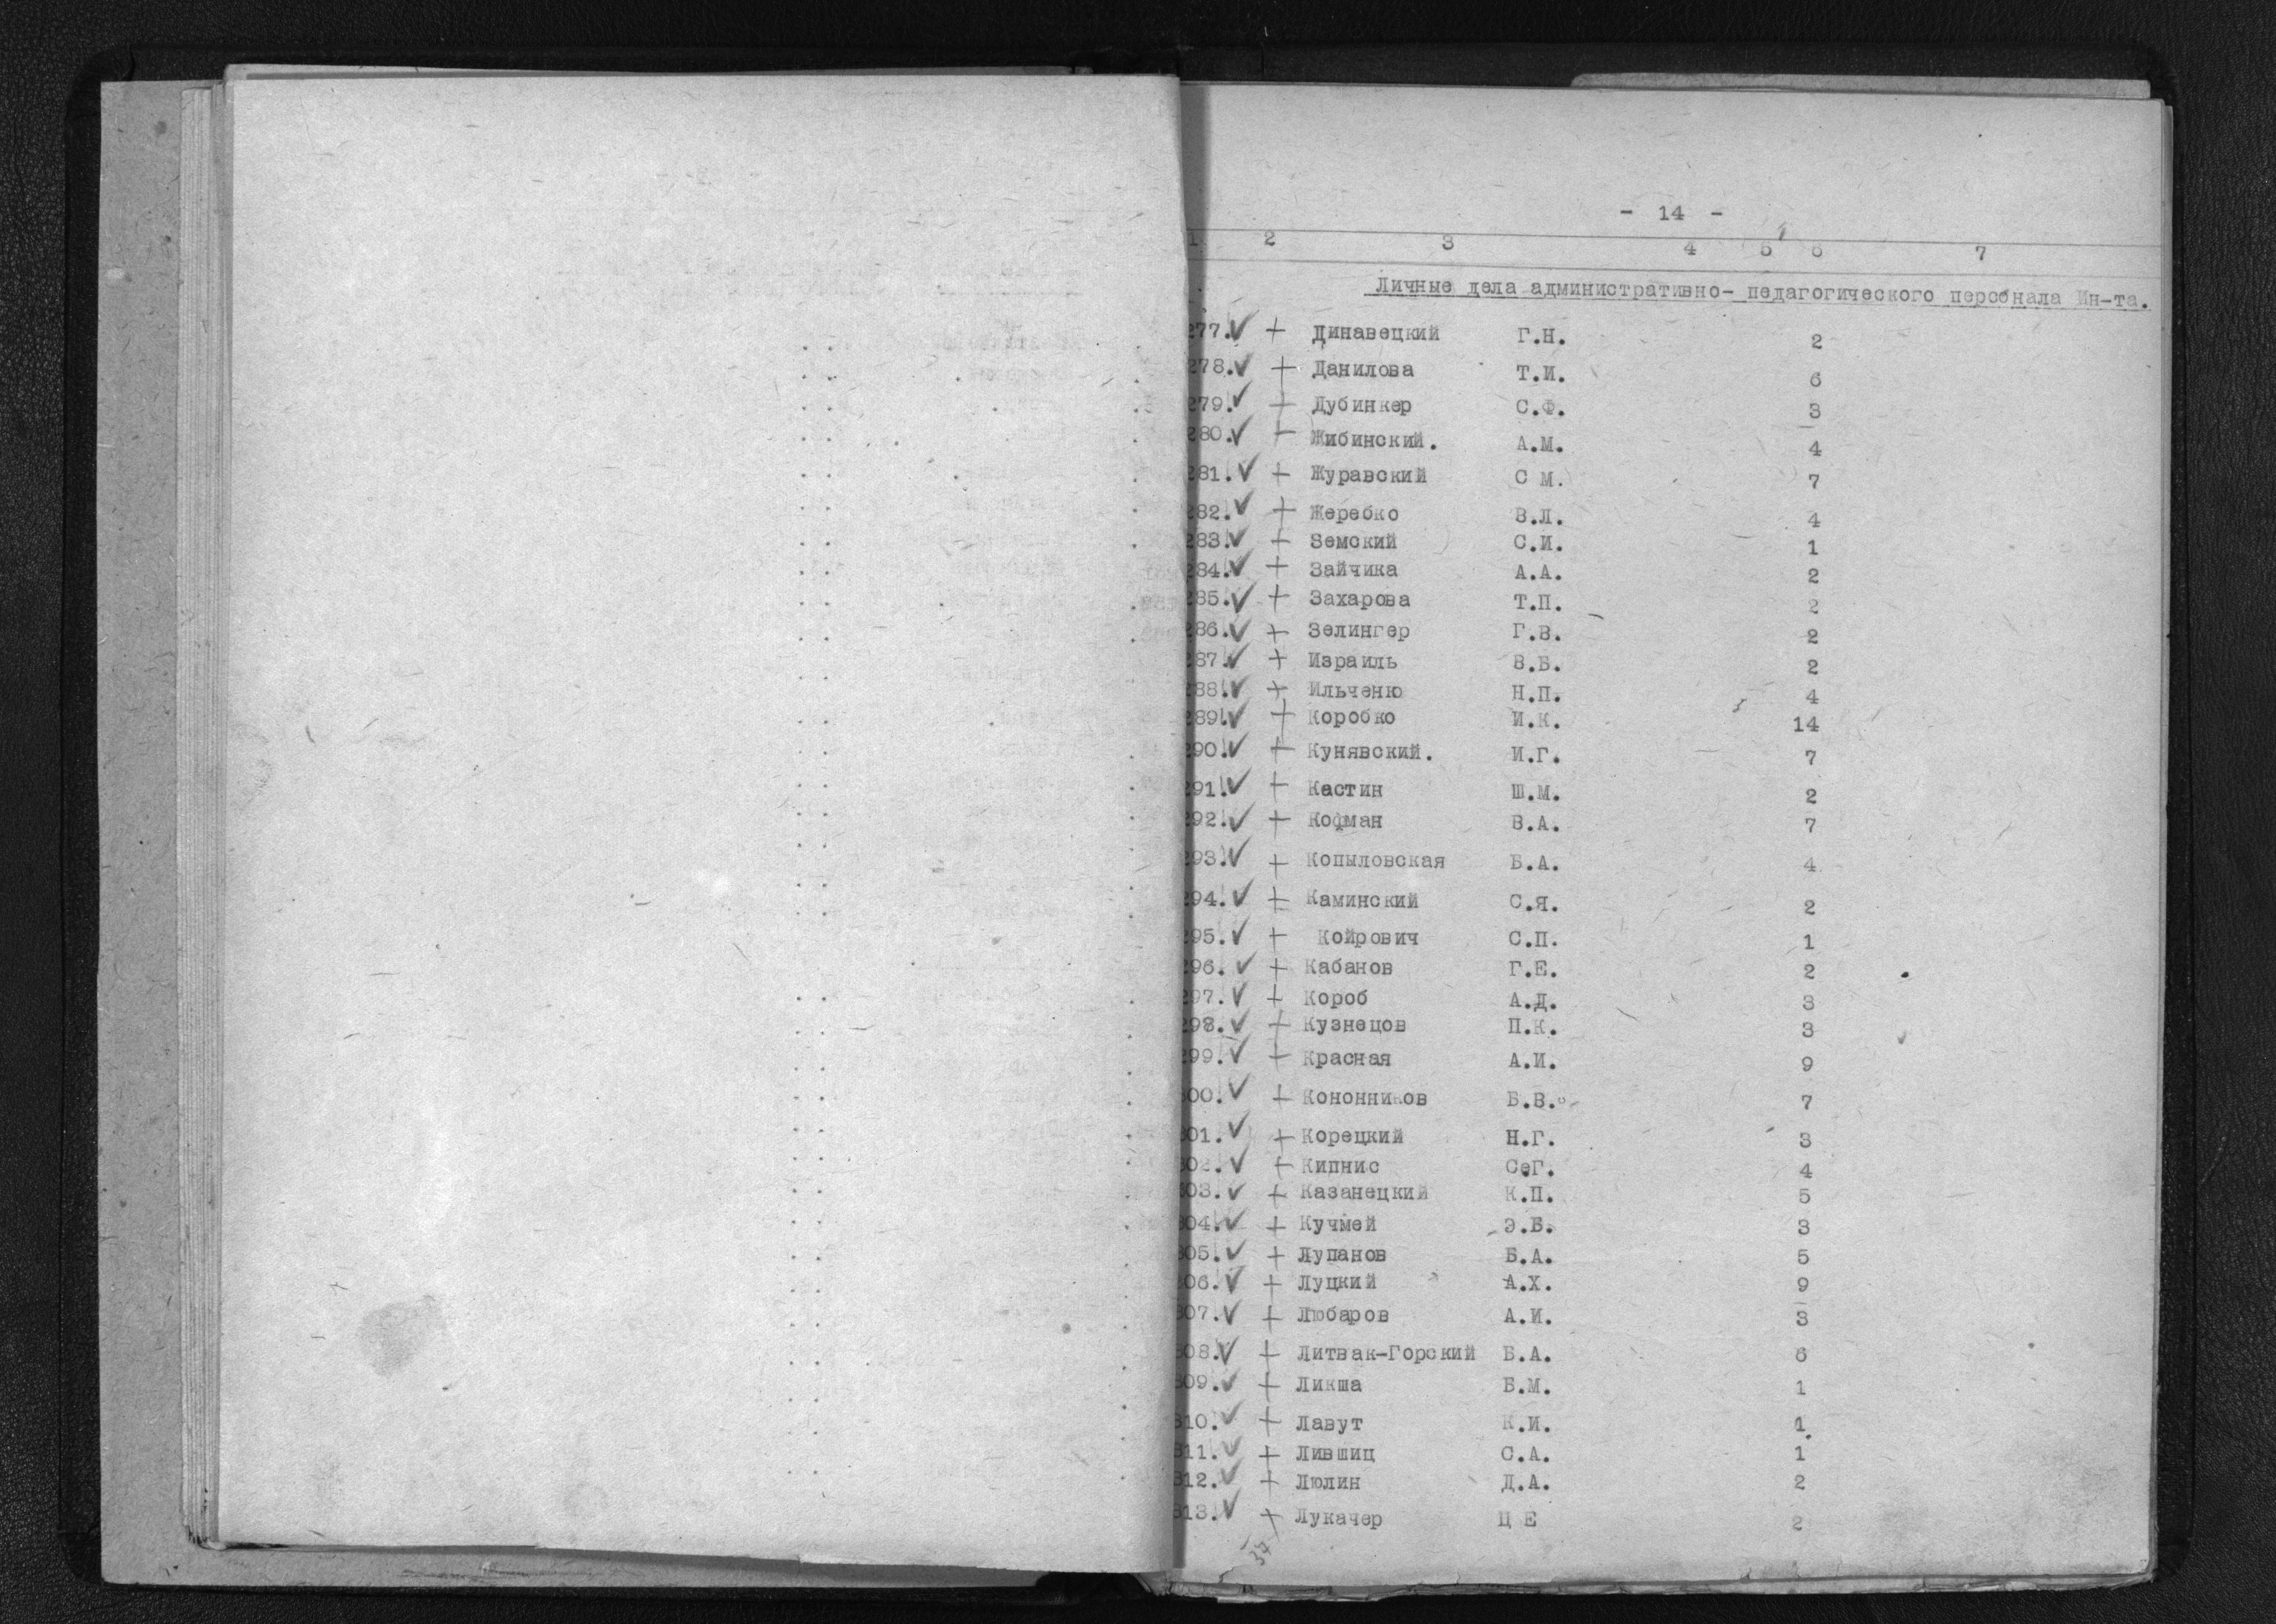 - 14 -
1 2 3 4 5 6 7
Личные дела административно- педагогического персонала Ин-та.
277.✓ + Динавецкий Г.Н. 2
278.✓ + Данилова Т.И. 6
279.✓ + Дубинкер С.Ф. 3
280.✓ + Жибинский. А.М. 4
281.✓ + Журавский С М. 7
282.✓ + Жеребко В.Л. 4
283.✓ + Земский С.И. 1
284.✓ + Зайчика А.А. 2
285.✓ + Захарова Т.П. 2
286.✓ + Зелингер Г.В. 2
287.✓ + Израиль В.Б. 2
288.✓ + Ильченко Н.П. 4
289.✓ + Коробко И.К. 14
290.✓ + Кунявский. И.Г. 7
291.✓ + Кастин Ш.М. 2
292.✓ + Кофман В.А. 7
293.✓ + Копыловская Б.А. 4
294.✓ + Каминский С.Я. 2
295.✓ + Койрович С.П. 1
296.✓ + Кабанов Г.Е. 2
297.✓ + Короб А.Д. 3
298.✓ + Кузнецов П.К. 3
299.✓ + Красная А.И. 9
300.✓ + Кононников Б.В. 7
301.✓ + Корецкий Н.Г. 3
302.✓ + Кипнис С.Г. 4
303.✓ + Казанецкий К.П. 5
304.✓ + Кучмей Э.Б. 3
305.✓ + Лупанов Б.А. 5
306.✓ + Луцкий А.Х. 9
307.✓ + Любаров А.И. 3
308.✓ + Литвак-Горский Б.А. 6
309.✓ + Ликша Б.М. 1
310.✓ + Лавут К.И. 1
311.✓ + Лившиц С.А. 1
312.✓ + Люлин Д.А. 2
313.✓ + Лукачер Ц Е 2
37